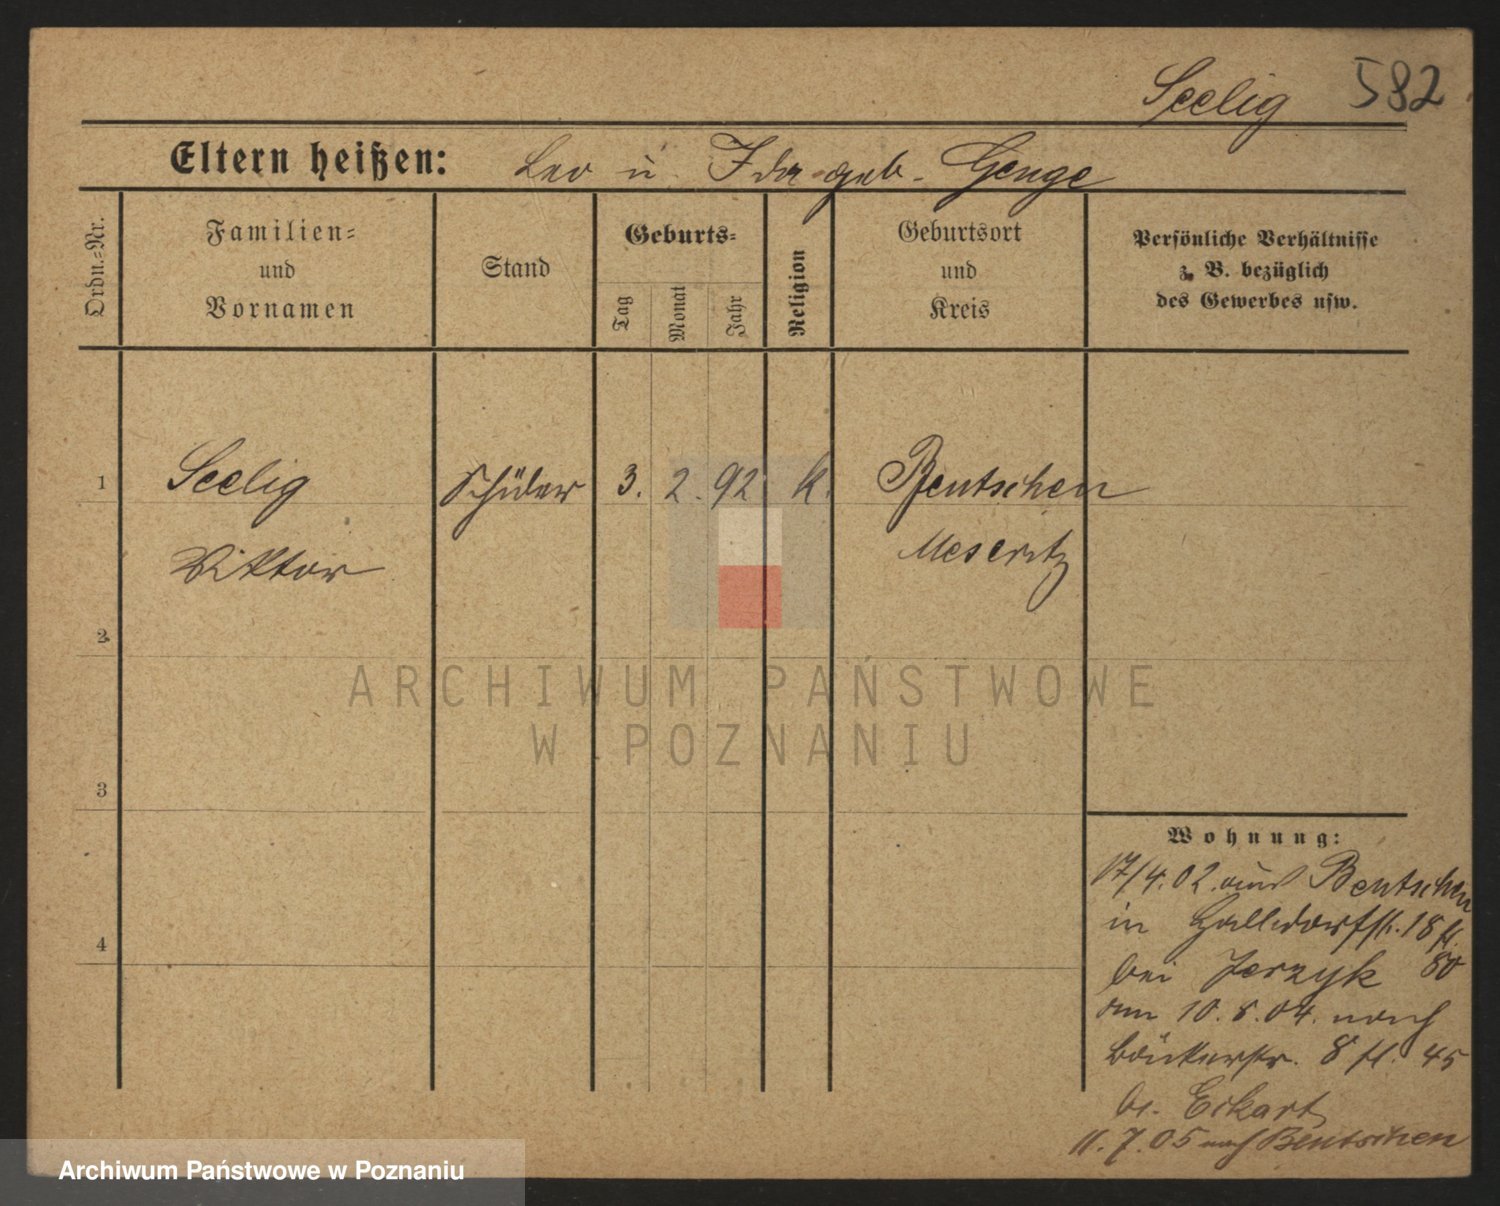 Seelig 582
Eltern heißen: Leo u. Ida geb. Genge
Ordn.-Nr.
Familien-
und
Vornamen
Stand
Geburts-
Tag
Monat
Jahr
Religion
Geburtsort
und
Kreis
Persönliche Verhältnisse
z. B. bezüglich
des Gewerbes usw.
1 Seelig Schüler 3. 2. 92 k. Bentschen
Viktor Meseritz
2
3
4
ARCHIWUM PAŃSTWOWE
W POZNANIU
Wohnung:
17/4.02. aus Bentschen
in 18
bei Jerzyk 80
am 10.8.04. nach
Bäckerstr. 8 45
bei Eckart
11.7.05 nach Bentschen
Archiwum Państwowe w Poznaniu